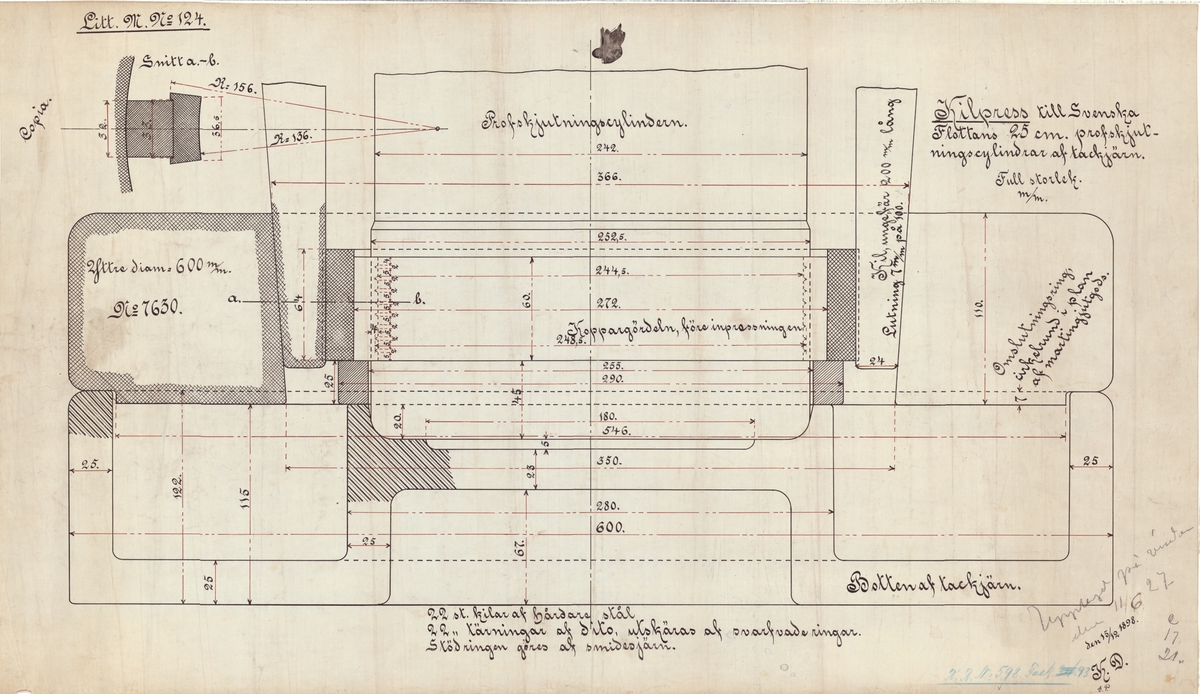 Litt. M. No 124.
Copia.
Snitt a.-b.
R= 156.
R= 136.
32.
33.
36,5
Profskjutningscylindern.
242.
366.
Kilpress till Svenska
Flottans 25 cm. profskjut-
ningscylindrar af tackjärn.
Full storlek.
m/m.
Kil, ungefär 200 m/m lång
Lutning 7 m/m på 100.
Yttre diam= 600 m/m.
No 7630.
a.
b.
64
252,5.
244,5.
272.
60.
Koppargördeln, före inpressningen
248,5.
110.
Omslutningsring,
cirkelrund i plan
af martingjutgods.
24
7
25
255.
290.
45
20.
180.
546.
5
350.
23
25.
25
122.
115
280.
600.
25
67.
25
Botten af tackjärn.
22 st. kilar af hårdare stål
22 „ tärningar af d:to, utskäras af svarfvade ringar.
Stödringen göres af smidesjärn.
Upplagd på
den 11/6 27
den 15/12 1898.
K. D.
17
21.